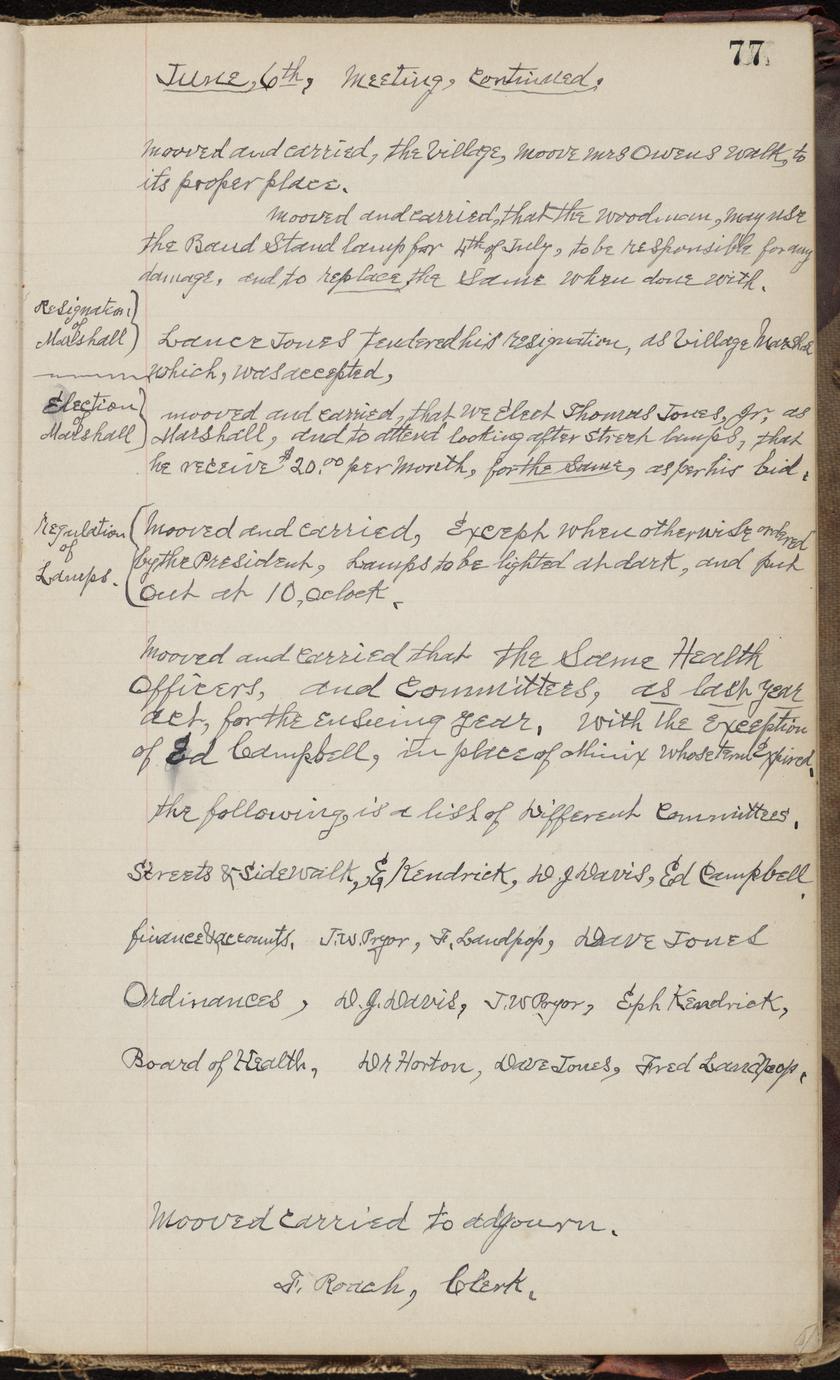 77
June, 6th, Meeting, Continued,
Mooved and carried, the Village, moove mrs Owens walk, to
its proper place.
Mooved and carried, that the Woodman, may use
the Band Stand lamp for 4th of July, to be responsible for any
damage, and to replace the Same when done with.
Resignation
of
Marshall
Lance Jones tendered his resignation, as Village Marshal
which, was accepted,
Election
of
Marshall
mooved and carried, that we Elect Thomas Jones, Jr, as
Marshall, and to attend looking after Street lamps, that
he receive $20.00 per Month, for the Same, as per his bid.
Regulation
of
Lamps.
Mooved and carried, Except when otherwise ordered
by the President, Lamps to be lighted at dark, and put
Out at 10, Oclock.
Mooved and carried that the Same Health
Officers, and Committees, as last year
act, for the ensueing year, With the Exception
of Ed Campbell, in place of Minix whose term Expired.
the following, is a list of Different Committees.
Streets & SideWalk, E, Kendrick, D. J Davis, Ed Campbell.
finance & accounts, J. W. Pryor, F. Landpop, Dave Jones
Ordinances, D. J. Davis, J. W Pryor, Eph Kendrick,
Board of Health, Dr Horton, Dave Jones, Fred Landpop.
Mooved carried to adjourn.
F. Roach, Clerk.